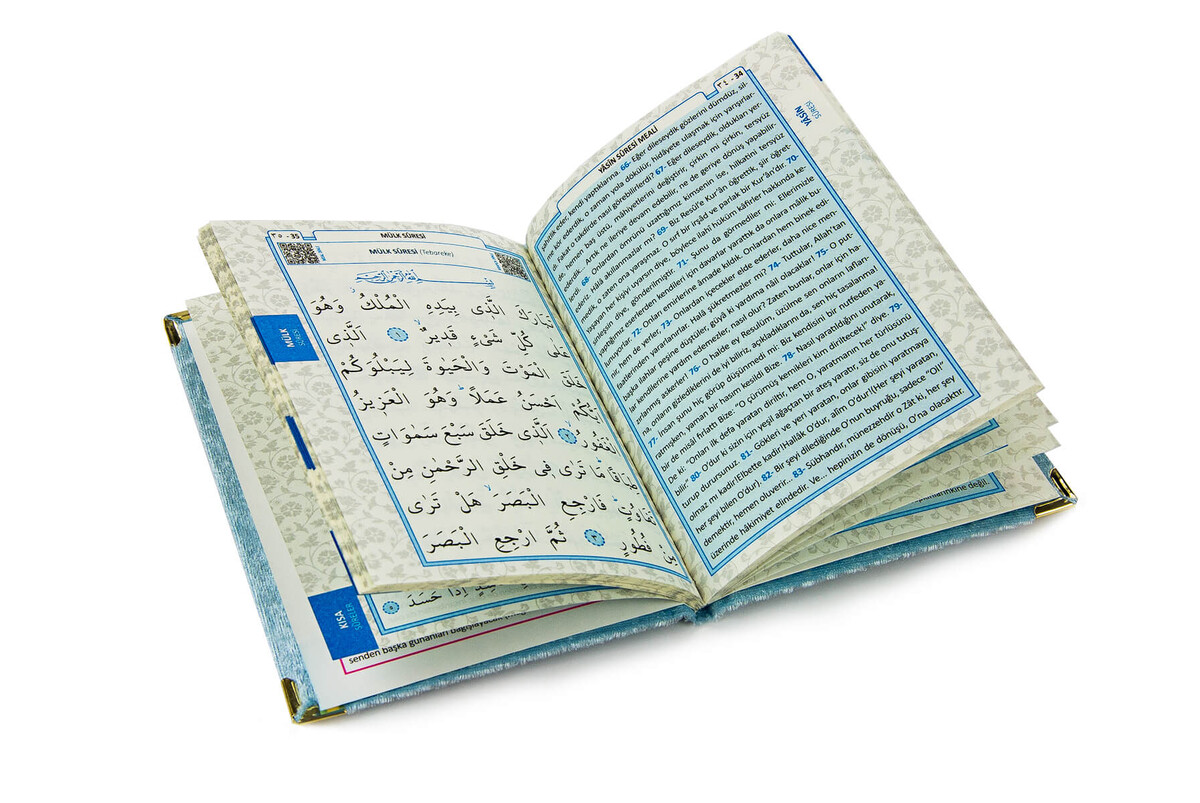 ٣٤ - 34
YÂSİN
SÛRESİ
YÂSİN SÛRESİ MEALİ
eder, kendi yaptıklarına. 66- Eğer dileseydik gözlerini dümdüz, sil-
me kör ederdik, o zaman yola dökülür, hidâyete ulaşmak için yarışırlar-
dı. Fakat o takdirde nasıl görebilirlerdi? 67- Eğer dileseydik, oldukları yer-
de, hemen baş üstü, mâhiyetlerini değiştirir, çirkin mi çirkin, tersyüz
Artık ne ileriye devam edebilir, ne de geriye dönüş yapabilir-
lerdi. 68- Onlardan ömrünü uzattığımız kimsenin ise, hilkatini tersyüz
ederiz. Hâlâ akıllanmazlar mı? 69- Biz Resûl'e Kur'ân öğrettik, şiir öğret-
medik, o zaten ona yaraşmaz. O sırf bir irşâd ve parlak bir Kur'ân'dır. 70-
Yaşayan her kişiyi uyarsın diye, söylece ilahî hüküm kâfirler hakkında ke-
sinleşsin diye, gönderilmiştir. 71- Şunu da görmediler mi: Ellerimizle
yaptığımız eserlerden kendileri için davarlar yarattık da onlara mâlik bu-
lunuyorlar. 72- Onları emirlerine âmade kıldık. Onlardan hem binek edi-
nir, hem de yerler. 73- Onlardan içecekler elde ederler, daha nice men-
faatlerinden yararlanırlar. Halâ şükretmezler mi? 74- Tuttular, Allah'tan
başka ilahlar peşine düştüler, gûyâ ki yardıma nâil olacaklar! 75- O put-
lar kendilerine yardım edemezler, nasıl olur? Zaten bunlar, onlar için ha-
zırlanmış askerler! 76- O halde ey Resulüm, üzülme sen onların lafları-
na, onların gizlediklerini de iyi biliriz, açıkladıklarını da, sen hiç tasalanma!
77- İnsan şunu hiç görüp düşünmedi mi: Biz kendisini bir nutfeden ya-
ratmışken, yaman bir hasım kesildi Bize. 78- Nasıl yaratıldığını unutarak,
bir de misâl fırlattı Bize: "O çürümüş kemikleri kim diriltecek!" diye. 79-
De ki: "Onları ilk defa yaratan diriltir, hem O, yaratmanın her türlüsünü
bilir." 80- O'dur ki sizin için yeşil ağaçtan bir ateş yaratır, siz de onu tutuş-
turup durursunuz. 81- Gökleri ve yeri yaratan, onlar gibisini yaratmaya
olmaz mı kadir!Elbette kadir!Hallâk O'dur, alîm O'dur!(Her şeyi yaratan,
her şeyi bilen O'dur). 82- Bir şeyi dilediğinde O'nun buyruğu, sadece "Ol!"
demektir, hemen oluverir... 83- Sübhandır, münezzehdir O Zât ki, her şey
üzerinde hâkimiyet elindedir. Ve... hepinizin de dönüşü, O'na olacaktır.
değil.
٣٥ - 35
MÜLK SÛRESİ
MÜLK SÛRESİ (Tebareke)
MÜLK
SÛRESİ
بِسْمِ اللّٰهِ الرَّحْمٰنِ الرَّحِيمِ
تَبَارَكَ الَّذِى بِيَدِهِ الْمُلْكُ وَهُوَ
عَلَى كُلِّ شَىْءٍ قَدِيرٌ ﴿١﴾ اَلَّذِى
خَلَقَ الْمَوْتَ وَالْحَيٰوةَ لِيَبْلُوَكُمْ
اَيُّكُمْ اَحْسَنُ عَمَلًا وَهُوَ الْعَزِيزُ
الْغَفُورُ ﴿٢﴾ اَلَّذِى خَلَقَ سَبْعَ سَمٰوَاتٍ
طِبَاقًا مَا تَرٰى فِى خَلْقِ الرَّحْمٰنِ مِنْ
تَفَاوُتٍ فَارْجِعِ الْبَصَرَ هَلْ تَرٰى
مِنْ فُطُورٍ ﴿٣﴾ ثُمَّ ارْجِعِ الْبَصَرَ
اِذَا حَسَدَ
KISA
SÛRELER
senden başka günahları bağışlayacak